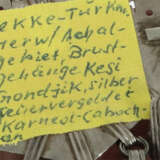 ekke-Türkm
ner w/ Achal-
gebiet, Brust-
gehänge Kesi
mondjik, Silber
feuervergoldet
Karneol-Caboch
on